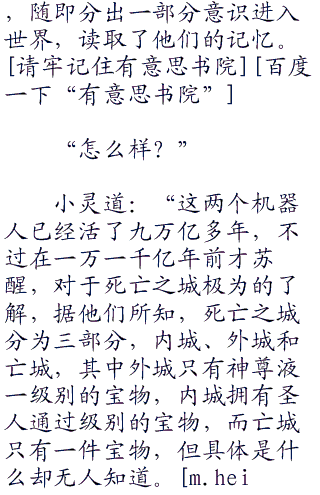 ，随即分出一部分意识进入
世界，读取了他们的记忆。
[请牢记住有意思书院][百度
一下“有意思书院”]
“怎么样？”
小灵道：“这两个机器
人已经活了九万亿多年，不
过在一万一千亿年前才苏
醒，对于死亡之城极为的了
解，据他们所知，死亡之城
分为三部分，内城、外城和
亡城，其中外城只有神尊液
一级别的宝物，内城拥有圣
人通过级别的宝物，而亡城
只有一件宝物，但具体是什
么却无人知道。[m.hei